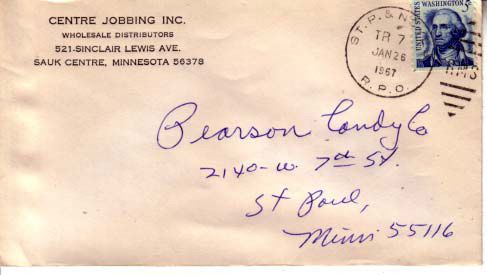 CENTRE JOBBING INC.
WHOLESALE DISTRIBUTORS
521-SINCLAIR LEWIS AVE.
SAUK CENTRE, MINNESOTA 56378
ST. P. & N
TR 7
JAN 26
1967
R.P.O.
UNITED STATES
WASHINGTON
5
RMS
Pearson Candy Co
2140-W. 7th St.
St Paul,
Minn 55116